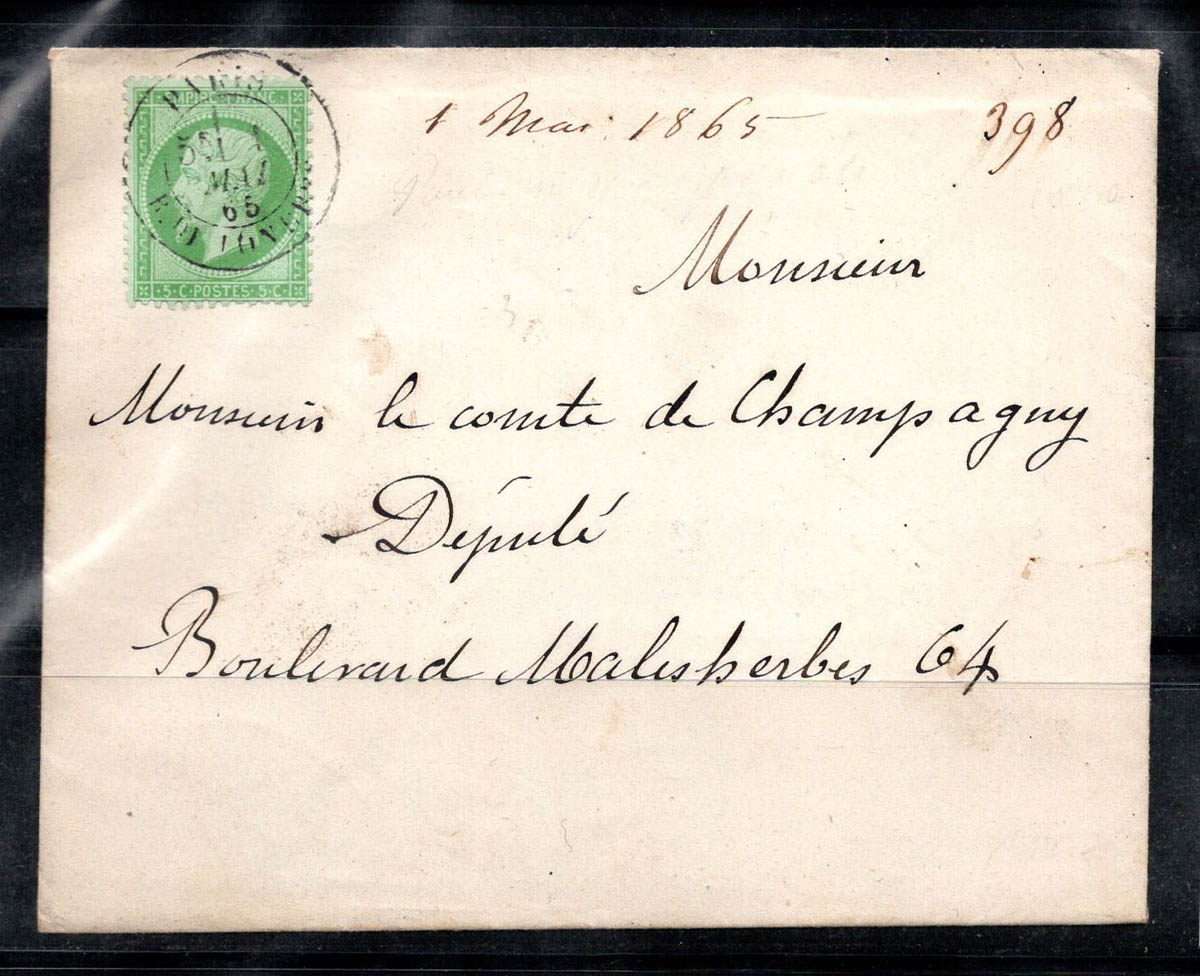 PARIS
MAI
65
EMPIRE FRANC.
5·C·POSTES·5·C·
1 Mai 1865 398
Monsieur
Monsieur le comte de Champagny
Député
Boulevard Malesherbes 64